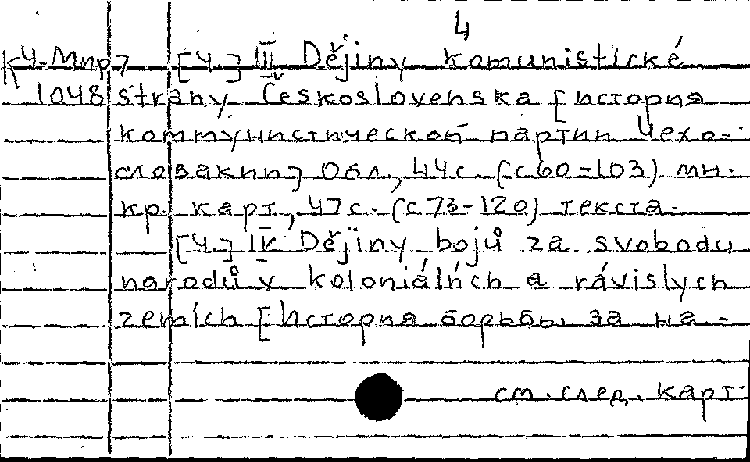 4
К4-Мпр7 [Ч.] III Dějiny komunistické
1048 strany Československa [История
коммунистической партии Чехо-
словакии], Обл., 44с. (с60-103) мн.
кр. карт., 47с. (с73-120) текста.
[Ч.] IV Dějiny bojů za svobodu
narodů v koloniálních a závislych
zemích [История борьбы за на-
см. след. карт.